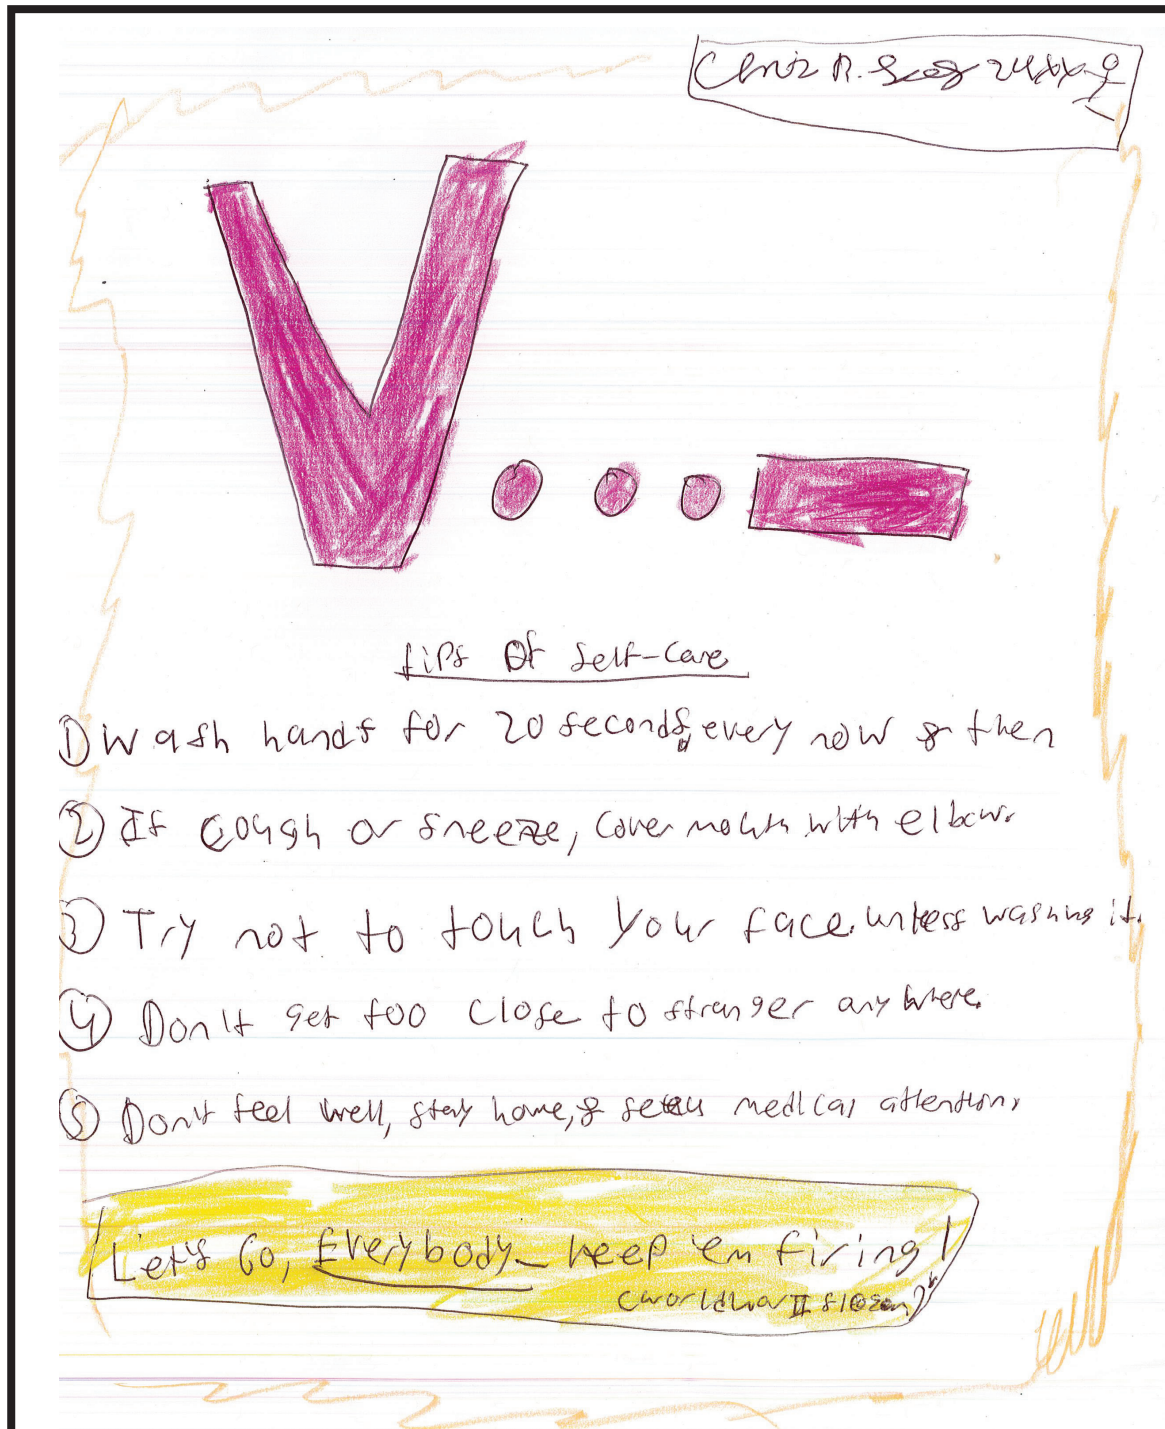 V...—
tips of self-care
① wash hands for 20 seconds, every now & then
② If cough or sneeze, cover mouth with elbow.
③ Try not to touch your face. unless washing it.
④ Don't get too close to stranger anywhere.
⑤ Don't feel well, stay home, & medical attention.
Let's Go, Everybody— keep 'em firing!
(World War II slogan)